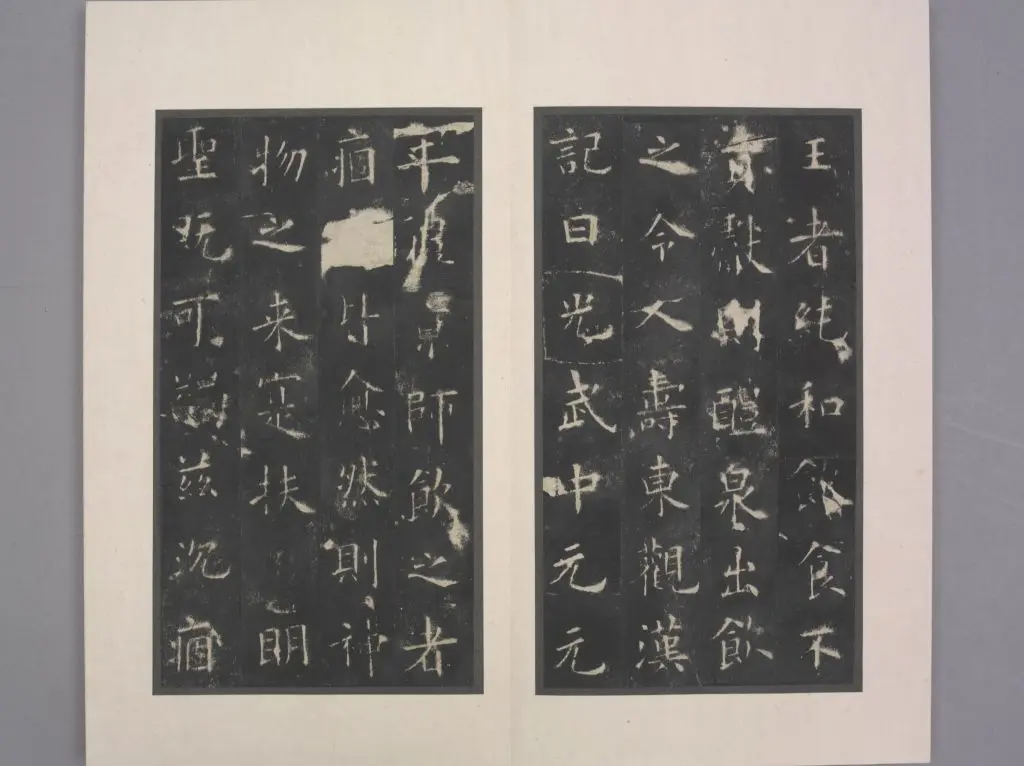 王者純和飲食不
貢獻則醴泉出飲
之令人壽東觀漢
記曰光武中元元
年京師飲之者
痼皆愈然則神
物之来寔扶明
聖既可蠲兹沉痼